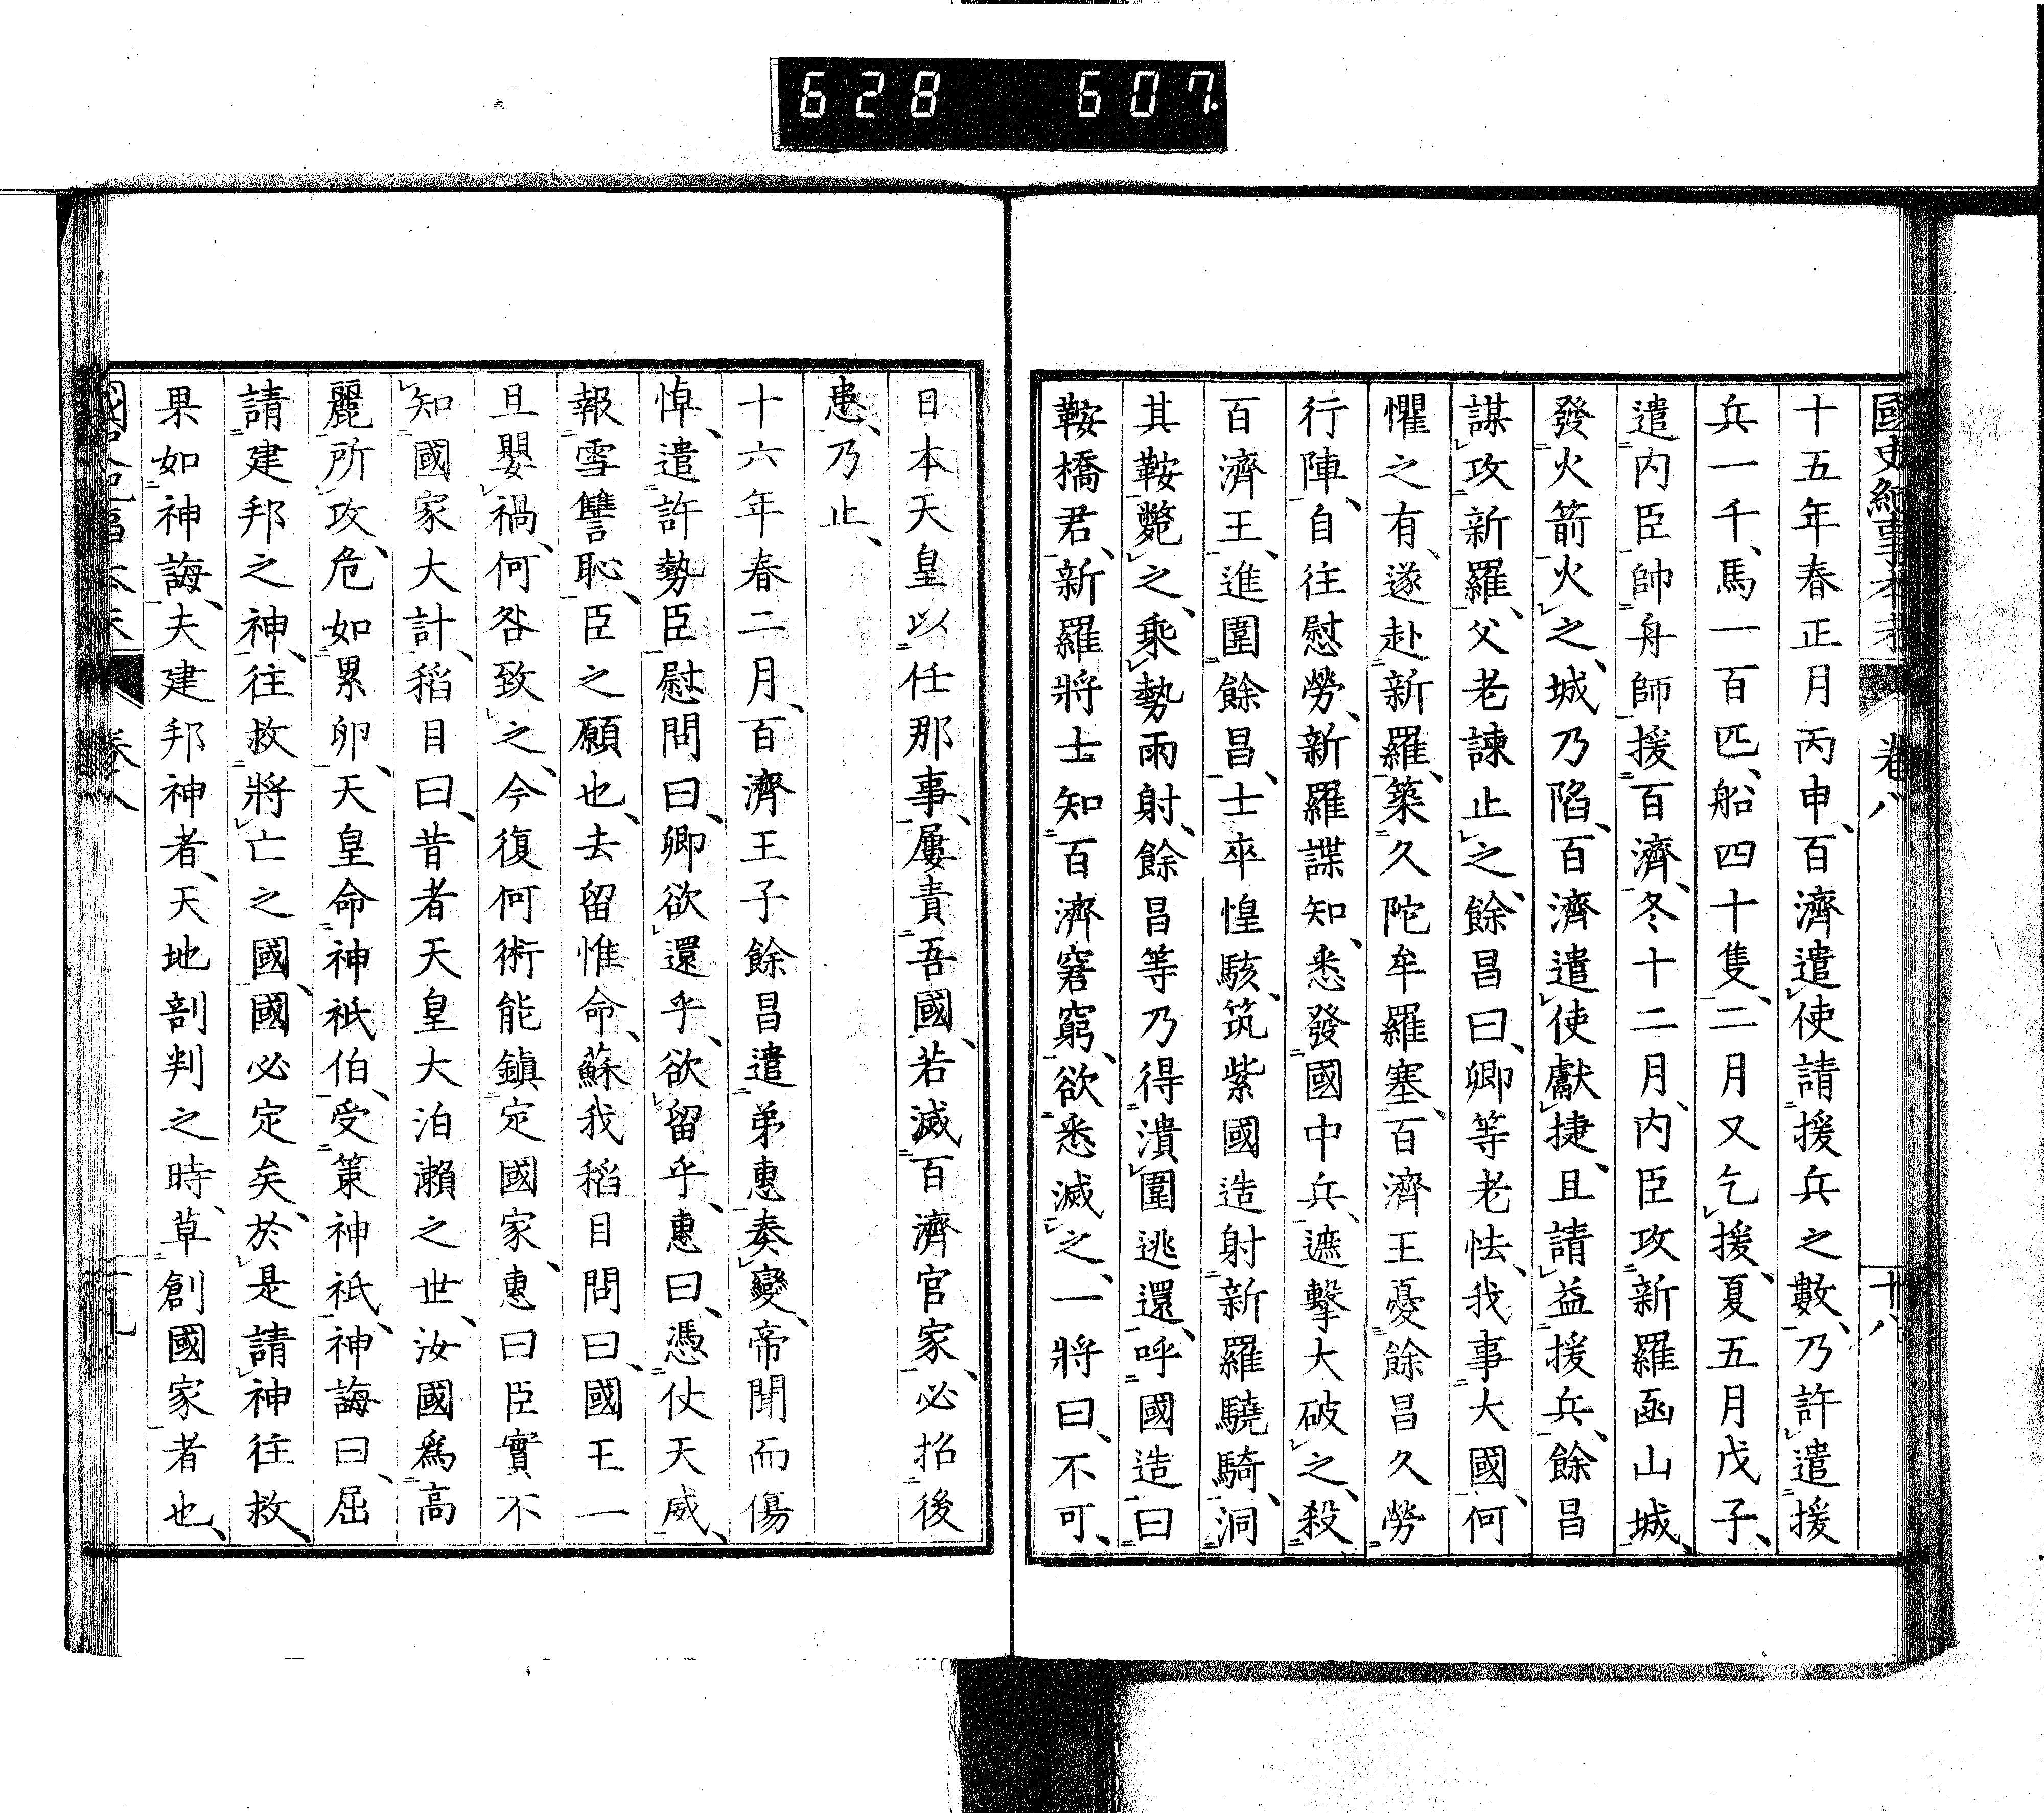 628 607
國史紀事本末 卷八 十八
十五年春正月丙申、百濟遣使請援兵之數、乃許遣援
兵一千、馬一百匹、船四十隻、二月又乞援、夏五月戊子、
遣内臣帥舟師援百濟、冬十二月、内臣攻新羅函山城、
發火箭火之、城乃陷、百濟遣使獻捷、且請益援兵、餘昌
謀攻新羅、父老諫止之、餘昌曰、卿等老怯、我事大國、何
懼之有、遂赴新羅、築久陀牟羅塞、百濟王憂餘昌久勞
行陣、自往慰勞、新羅諜知、悉發國中兵、遮擊大破之、殺
百濟王、進圍餘昌、士卒惶駭、筑紫國造射新羅驍騎、洞
其鞍斃之、乘勢雨射、餘昌等乃得潰圍逃還、呼國造曰
鞍橋君、新羅將士知百濟窘窮、欲悉滅之、一將曰、不可、
日本天皇以任那事、屢責吾國、若滅百濟官家、必招後
患、乃止、
十六年春二月、百濟王子餘昌遣弟惠奏變、帝聞而傷
悼、遣許勢臣慰問曰、卿欲還乎、欲留乎、惠曰、憑仗天威、
報雪讐恥、臣之願也、去留惟命、蘇我稻目問曰、國王一
旦嬰禍、何咎致之、今復何術能鎭定國家、惠曰臣實不
知國家大計、稻目曰、昔者天皇大泊瀬之世、汝國爲高
麗所攻、危如累卵、天皇命神祇伯、受策神祇、神誨曰、屈
請建邦之神、往救將亡之國、國必定矣、於是請神往救、
果如神誨、夫建邦神者、天地剖判之時、草創國家者也、
卷八